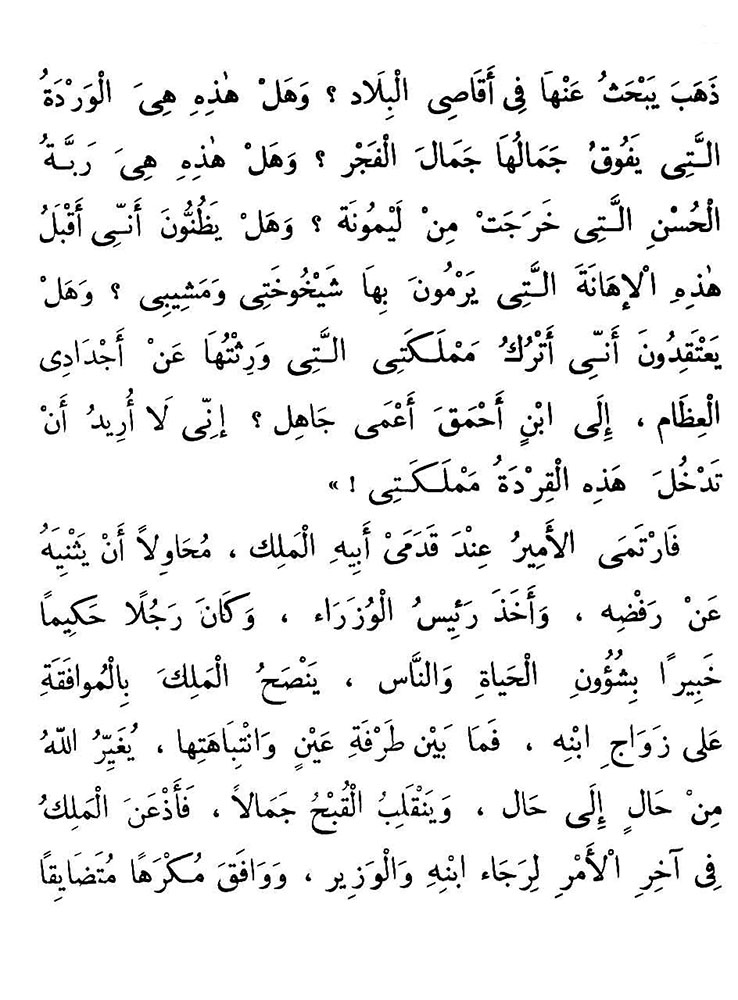 ذَهَبَ يَبْحَثُ عَنْهَا فِى أَقَاصِى الْبِلَاد ؟ وَهَلْ هٰذِهِ هِىَ الْوَرْدَةُ
الَّـتِى يَفُوقُ جَمَالُهَا جَمَالَ الْفَجْر ؟ وَهَلْ هٰذِهِ هِىَ رَبَّـةُ
الْحُسْنِ الَّـتِى خَرَجَتْ مِنْ لَيْمُونَة ؟ وَهَلْ يَظُنُّونَ أَنِّـى أَقْبَلُ
هٰذِهِ الْإِهَانَةَ الَّـتِى يَرْمُونَ بِهَا شَيْخُوخَتِى وَمَشِيبِى ؟ وَهَلْ
يَعْتَقِدُونَ أَنِّـى أَتْرُكُ مَمْلَـكَتِى الَّـتِى وَرِثْتُهَا عَنْ أَجْدَادِى
الْعِظَام ، إِلَى ابْنٍ أَحْمَقَ أَعْمَى جَاهِل ؟ إِنِّى لَا أُرِيدُ أَنْ
تَدْخُلَ هَذِهِ الْقِرْدَةُ مَمْلَـكَـتِى ! »
فَارْتَمَى الأَمِيرُ عِنْدَ قَدَمَىْ أَبِيهِ الْمَلِك ، مُحَاوِلاً أَنْ يَثْنِيَهُ
عَنْ رَفْضِه ، وَأَخَذَ رَئِيسُ الْوُزَرَاء ، وَكَانَ رَجُلًا حَكِيماً
خَبِيرًا بِشُؤُونِ الْحَيَاةِ وَالنَّاس ، يَنْصَحُ الْمَلِكَ بِالْمُوافَقَةِ
عَلى زَوَاجِ ابْنِه ، فَمَا بَيْن طَرْفَةِ عَيْنٍ وَانْتِبَاهَتِها ، يُغَيِّرُ اللّٰهُ
مِنْ حَالٍ إِلَى حَال ، وَيَنْقَلِبُ الْقُبْحُ جَمَالاً ، فَأَذْعَنَ الْمَلِكُ
فِى آخِرِ الْأَمْرِ لِرَجَاء ابْنِهِ وَالْوَزِير ، وَوَافَقَ مُـكْرَهًا مُتَضَايِقًا